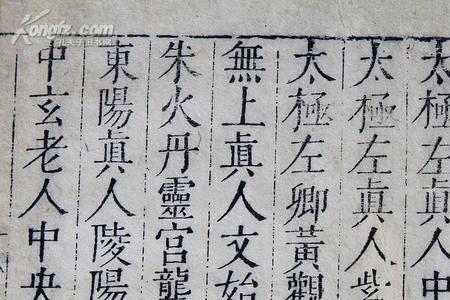 太極左真人中
太極左眞人紫
太極左卿黃觀
無上眞人文始
朱火丹靈宮龍
東陽眞人陵陽
中玄老人中央
Kongfz.com
孔夫子旧书网